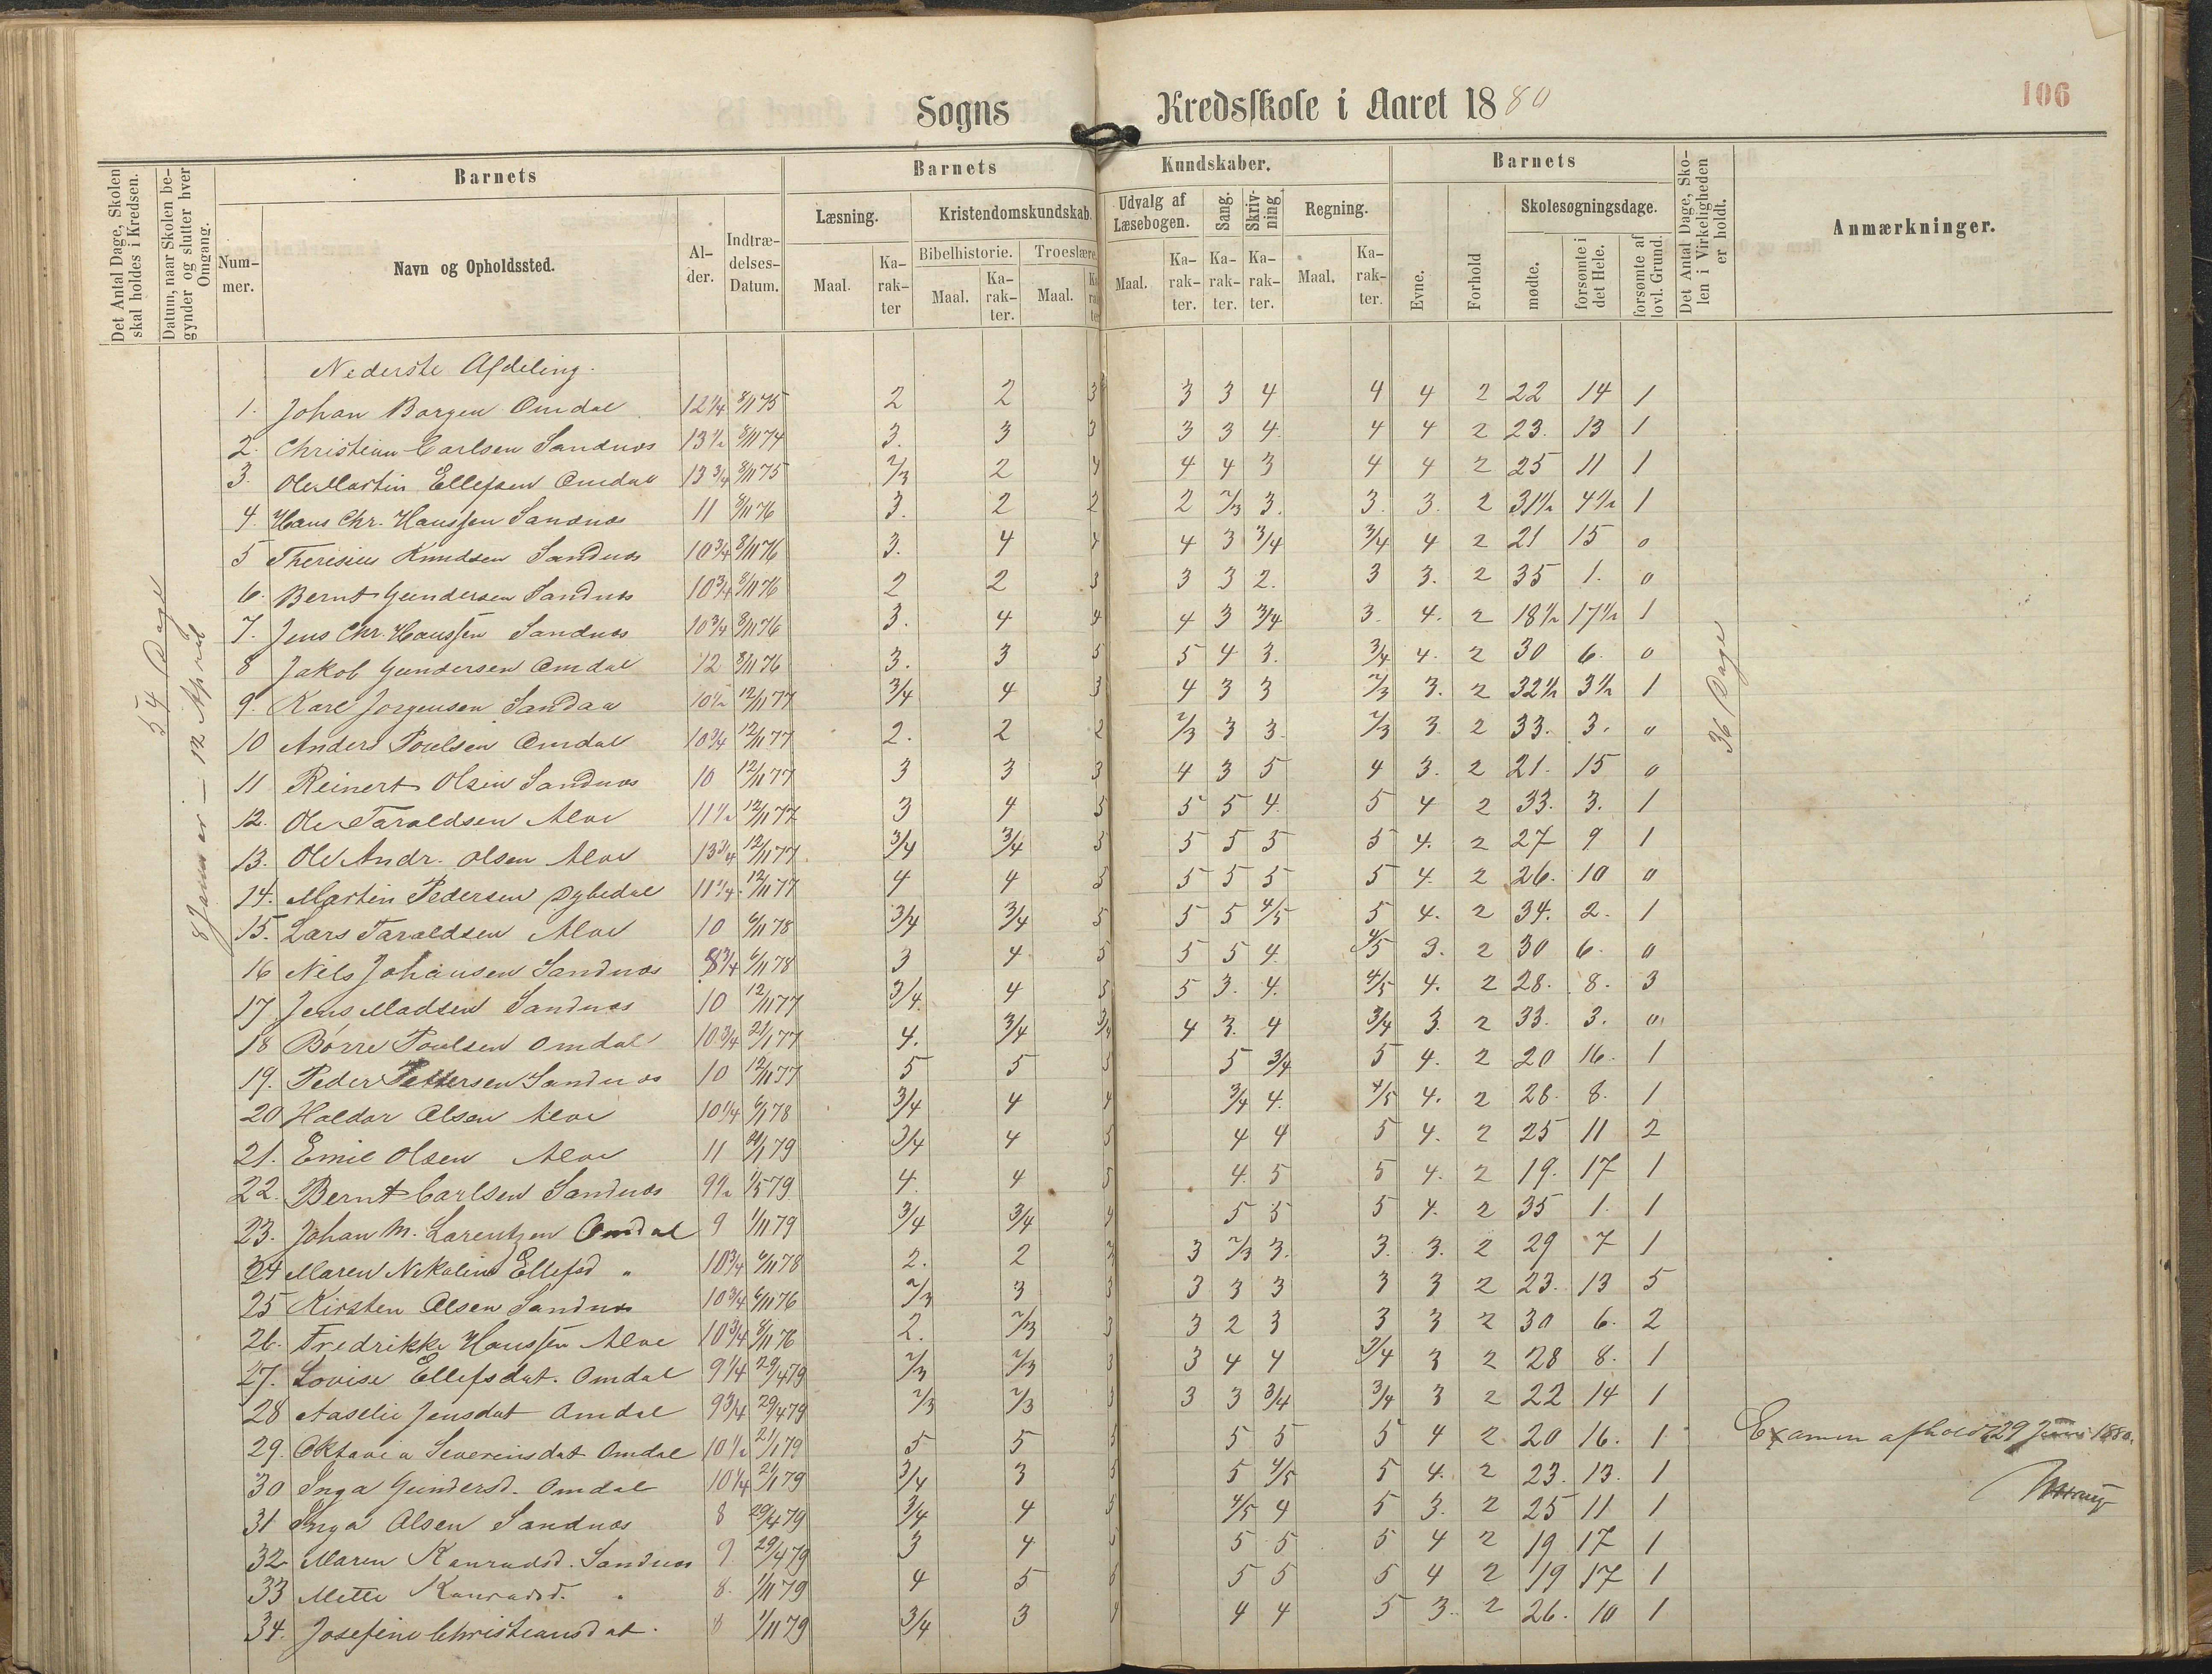 Sogns Kredsskole i Aaret 1880
106
Det Antal Dage, Skolen skal holdes i Kredsen.
Datum, naar Skolen begynder og slutter hver Omgang.
Barnets
Nummer.
Navn og Opholdssted.
Alder.
Indtrædelses-Datum.
Barnets Kundskaber.
Læsning.
Kristendomskundskab.
Bibelhistorie.
Troeslære.
Udvalg af Læsebogen.
Sang.
Skrivning
Regning.
Maal. Karakter Maal. Karakter. Maal. Karakter Maal. Karakter. Karakter. Karakter. Maal. Karakter.
Barnets
Evne.
Forhold
Skolesøgningsdage.
mødte.
forsømte i det Hele.
forsømte af lovl. Grund.
Det Antal Dage, Skolen i Virkeligheden er holdt.
Anmærkninger.
54 Dage
8 Januar – 12 April
36 Dage
Nederste Afdeling.
1. Johan Borgen Omdal 12 1/4 8/11 75 2 2 3 3 3 4 4 4 2 22 14 1
2. Christian Carlsen Sandnæs 13 1/2 8/11 74 3. 3 3 3 3 4. 4 4 2 23. 13 1
3. Ole Martin Ellefsen Omdal 13 3/4 8/11 75 2/3 2 4 4 4 3 4 4 2 25 11 1
4. Hans Chr. Hanssen Sandnæs 11 8/11 76 3. 2 2 2 2/3 3. 3. 3. 2 31 1/2 4 1/2 1
5 Theresius Knudsen Sandnæs 10 3/4 8/11 76 3. 4 4 4 3 3/4 3/4 4 2 21 15 0
6. Bernt Gundersen Sandnæs 10 3/4 8/11 76 2 2 3 3 3 2. 3 3. 2 35 1. 0
7. Jens Chr. Hanssen Sandnæs 10 3/4 8/11 76 3. 4 4 4 3 3/4 3. 4. 2 18 1/2 17 1/2 1
8 Jakob Gundersen Omdal 12 8/11 76 3. 3 5 5 4 3. 3/4 4. 2 30 6. 0
9. Karl Jorgensen Sandaa 10 1/2 12/11 77 3/4 4 3 4 3 3 2/3 3. 2 32 1/2 3 1/2 1
10 Anders Poulsen Omdal 10 3/4 12/11 77 2. 2 2 2/3 3 3. 2/3 3 2 33. 3. 0
11 Reinert Olsen Sandnæs 10 12/11 77 3 3 3 4 3 5 4 3. 2 21. 15 0
12. Ole Taraldsen Alve 11 1/2 12/11 77 3 4 5 5 5 4. 5 4 2 33. 3. 1
13. Ole Andr. Olsen Alve 13 3/4 12/11 77 3/4 3/4 5 5 5 5 5 4. 2 27 9 1
14. Martin Pedersen Dybedal 11 1/4 12/11 77 4 4 5 5 5 5 5 4. 2 26. 10 0
15. Lars Taraldsen Alve 10 6/11 78 3/4 3/4 5 5 5 4/5 5 4. 2 34. 2. 1
16 Nils Johansen Sandnæs 8 3/4 6/11 78 3 4 5 5 5 4. 4/5 3. 2 30 6. 0
17. Jens Madsen Sandnæs 10 12/11 77 3/4. 4 5 5 3. 4. 4/5 4. 2 28. 8. 3
18 Börre Poulsen Omdal 10 3/4 21/1 77 4. 3/4 3/4 4 3. 4 3/4 3 2 33. 3. 0
19. Peder Pettersen Sandnæs 10 12/11 77 5 5 5 5 3/4 5 4. 2 20 16. 1
20 Haldor Olsen Alve 10 1/4 6/1 78 3/4 4 4 3/4 4. 4/5 4. 2 28. 8. 1
21. Emil Olsen Alve 11 21/1 79 3/4 4 5 4 4 5 4. 2 25 11 2
22. Bernt Carlsen Sandnæs 9 1/2 1/5 79 4. 4 5 4. 5 5 4. 2 19. 17 1
23. Johan M. Larentzen Omdal 9 1/11 79 3/4 3/4 4 5 5 5 4. 2 35 1. 1
24 Maren Nikoline Ellefsd " 10 3/4 6/11 78 2. 2 3 3 2/3 3. 3. 3. 2 29 7 1
25 Kirsten Olsen Sandnæs 10 3/4 6/11 76 2/3 3 3 3 3 3 3 3 2 23. 13 5
26. Fredrikke Hanssen Alve 10 3/4 8/11 76 2. 2/3 3 3 2 3 3 3 2 30 6. 2
27. Lovise Ellefsdat. Omdal 9 1/4 29/4 79 2/3 2/3 3 3 4 4 3/4 3 2 28 8. 1
28 Aaselie Jensdat Omdal 9 3/4 29/4 79 2/3 2/3 3 3 3 3/4 3/4 3 2 22 14 1
29. Oktavia Severinsdat Omdal 10 1/2 21/1 79 5 5 5 5 5 5 4 2 20 16. 1
30 Inga Gundersd. Omdal 10 1/4 21/1 79 3/4 3 5 5 4/5 5 4. 2 23. 13. 1
31 Inga Olsen Sandnæs 8 29/4 79 3/4 4 5 4/5 4 5 3. 2 25 11 1
32 Maren Konradsd. Sandnæs 9 29/4 79 3 4 5 5 5 5 4 2 19 17 1
33 Mette Konradsd. " 8. 1/11 79 4 5 5 5 5 5 4 2 19 17 1
34. Josefine Christiansdat. 8 1/11 79 3/4 3 4 4 4 5 3. 2 26. 10 1
Examen afholdt 29 Juni 1880.